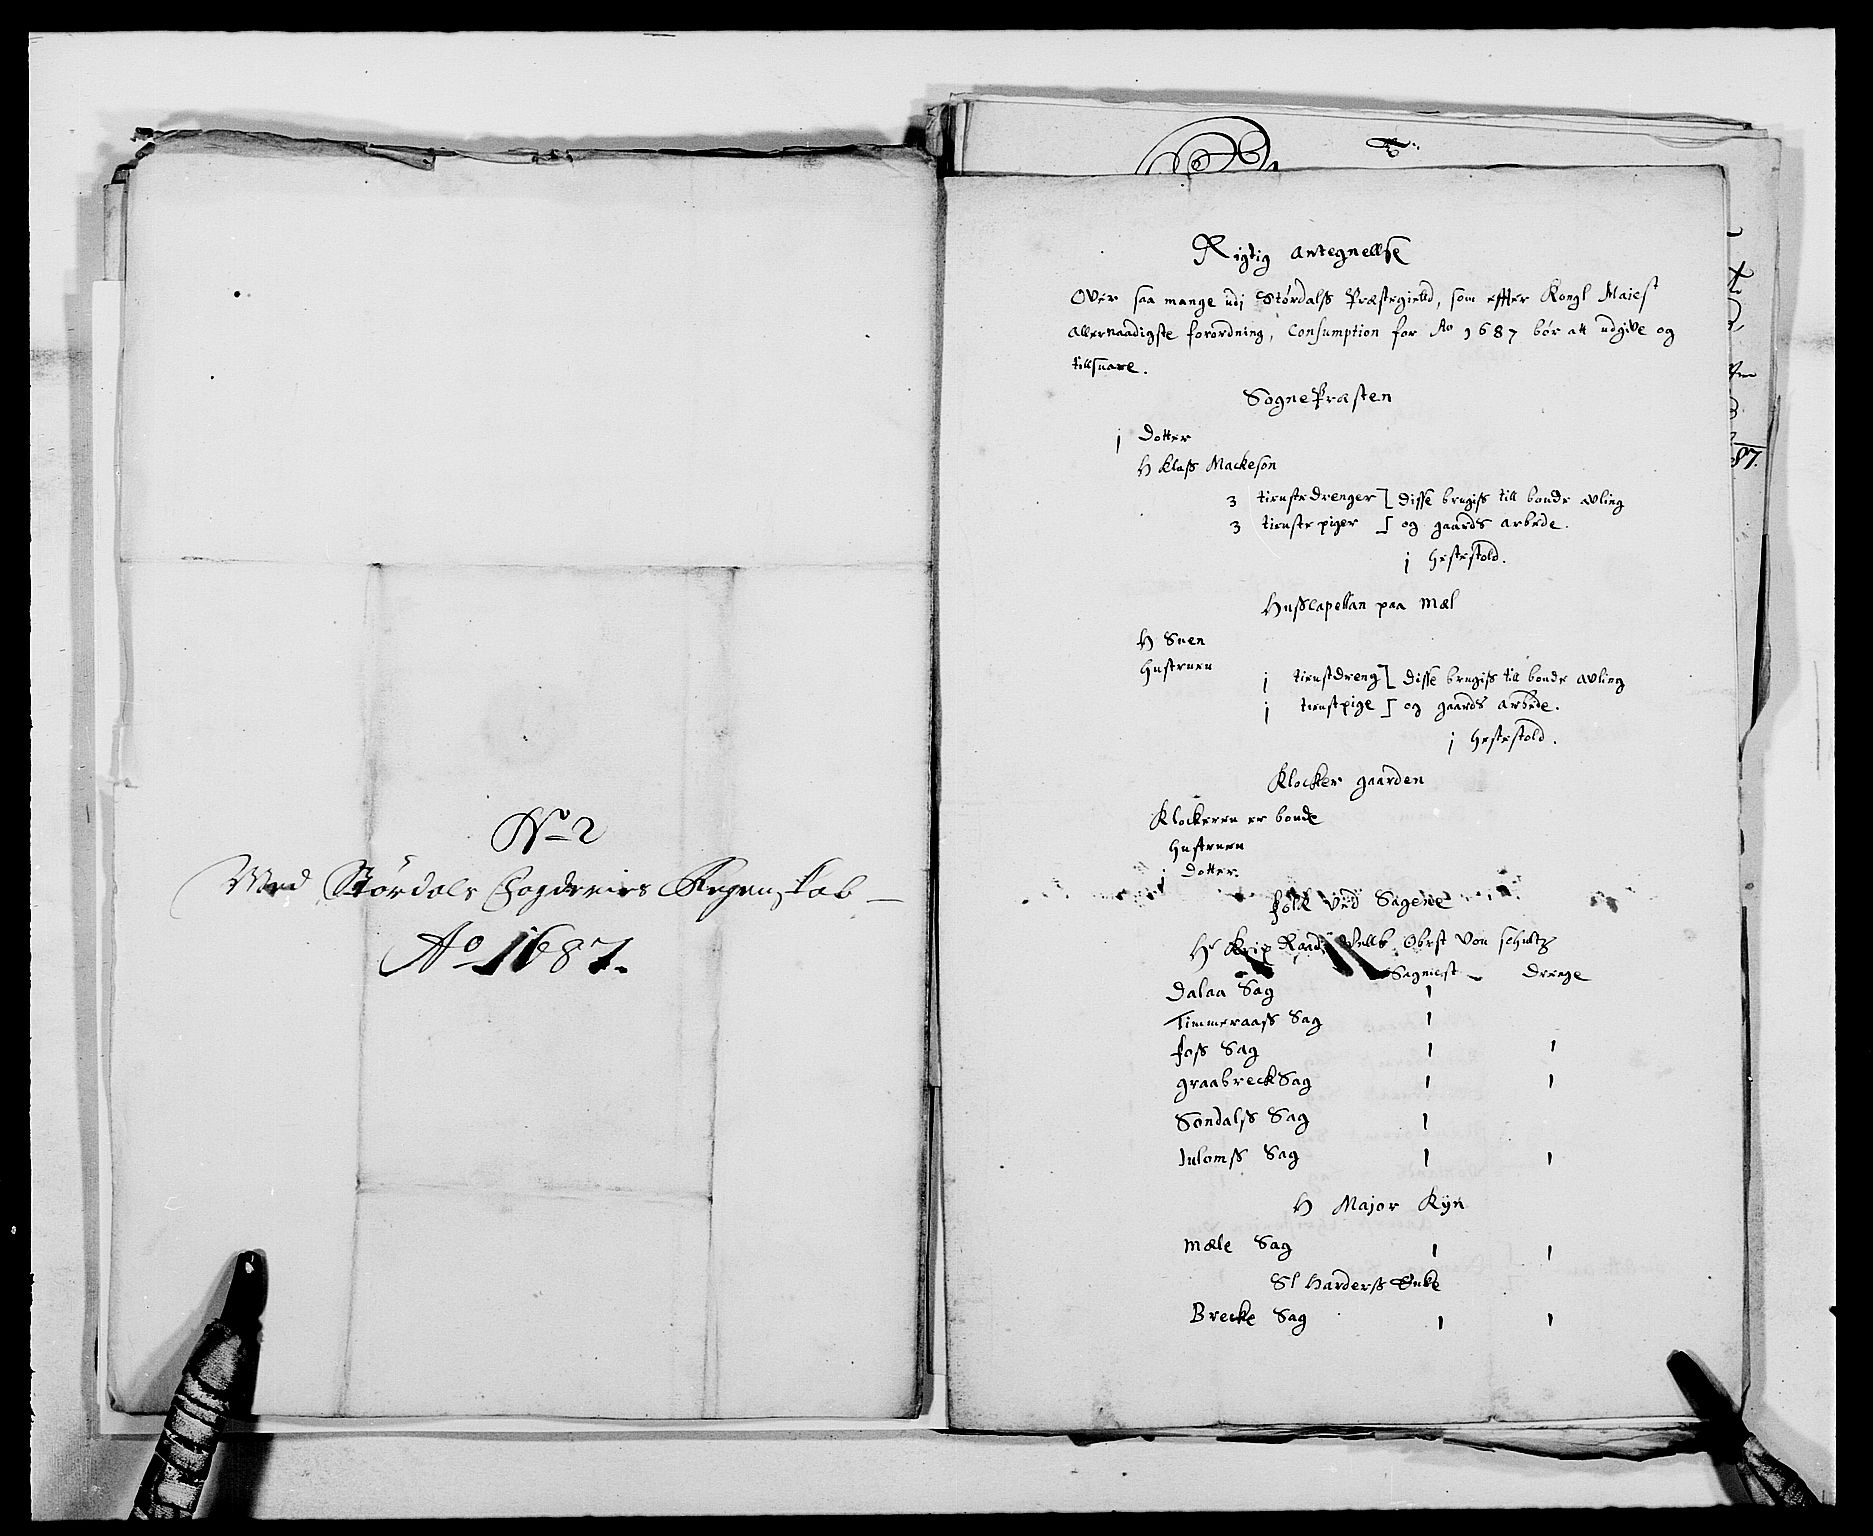 No 2
Med Størdals Fogderies Regenskab
Ao 1687.
Rigtig antegnellse
Over saa mange udj Størdalss Præstegielld, som effter Kongl Majest
allernaadigste forordning, Consumption for Ao 1687 bör att udgive og
tillsuare.
SognePræsten
j Dotter
H Klass Mackeson
3 tienstedrenger disse brugiss till bonde avling
3 tienste piger og gaards arbede.
j hestestold.
Huss Capellan paa Mæl
H Suen
hustruen
j tienstdreng disse brugiss till bonde avling
j tienstpige og gaards arbede.
j hestestold.
Klocker gaarden
Klockeren er bonde
hustruen
j Dotter.
folk ved Sagene
Hr Krigs Raad Obrst Von Schultz
Sagmest Drenge
Dalaa Sag 1
Timmeraass Sag 1
foss Sag 1 1
graabreck Sag 1 1
Sondalss Sag 1
Julomss Sag 1 1
H Major Kyn
Mæle Sag 1 1
Sl Harderss Enke
Brecke Sag 1 1
87.